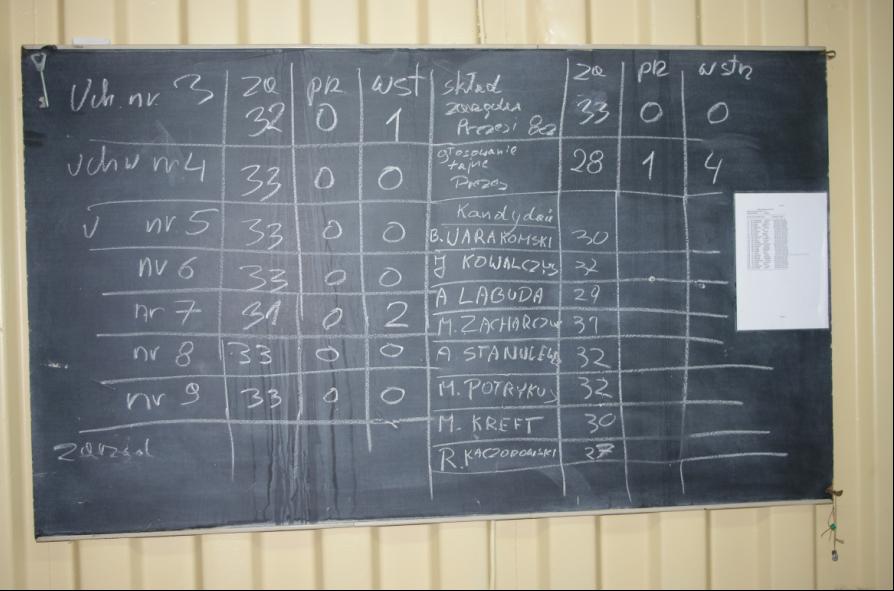 Uch. nr. 3 za pr wst
32 0 1
Uchw nr 4 33 0 0
U nr 5 33 0 0
nr 6 33 0 0
nr 7 31 0 2
nr 8 33 0 0
nr 9 33 0 0
zarząd
skład za pr wstrz
33 0 0
Prezesi
głosowanie
tajne 28 1 4
Prezes
Kandydaci
B. WARAKOMSKI 30
J KOWALCZYS 32
A LABUDA 29
M. ZACHAROW 31
A STANULEW 32
M. POTRYKUS 32
M. KREFT 30
R. KACZOROWSKI